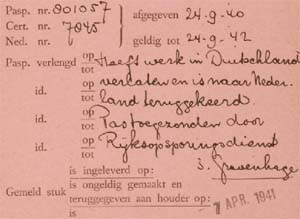 Pasp. nr. 801057 afgegeven 24-9-40
Cert. nr. 7845
Ned. nr. geldig tot 24-9-42
Pasp. verlengd op tot Heeft werk in Duitschland
id. op tot verlaten en is naar Neder
id. op tot land teruggekeerd
id. op tot Pas toegezonden door
Rijksopsporingsdienst
s. Gravenhage
is ingeleverd op:
Gemeld stuk is ongeldig gemaakt en
teruggegeven aan houder op:
is
1 APR. 1941